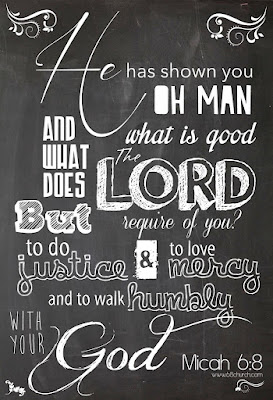 He has shown you
OH MAN
AND WHAT DOES
what is good
The LORD
require of you?
But
to do justice & to love mercy
and to walk humbly
WITH YOUR God
Micah 6:8
www.68church.com